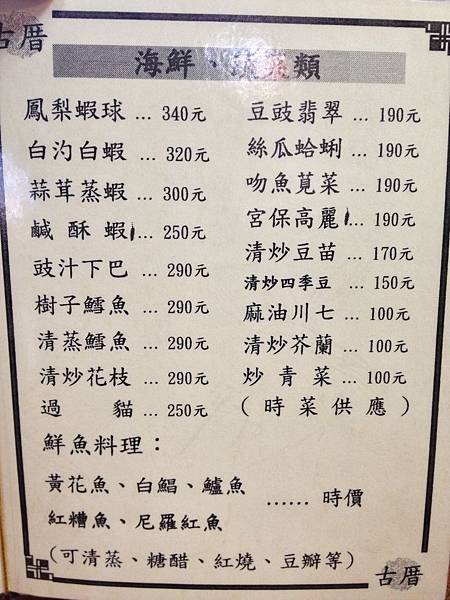 古厝
海鮮、蔬菜類
鳳梨蝦球 ... 340元
白灼白蝦 ... 320元
蒜茸蒸蝦 ... 300元
鹹酥蝦 ... 250元
豉汁下巴 ... 290元
樹子鱈魚 ... 290元
清蒸鱈魚 ... 290元
清炒花枝 ... 290元
過貓 ... 250元
豆豉翡翠 ... 190元
絲瓜蛤蜊 ... 190元
吻魚莧菜 ... 190元
宮保高麗 ... 190元
清炒豆苗 ... 170元
清炒四季豆 ... 150元
麻油川七 ... 100元
清炒芥蘭 ... 100元
炒青菜 ... 100元
(時菜供應)
鮮魚料理：
黃花魚、白鯧、鱸魚
紅糟魚、尼羅紅魚
...... 時價
(可清蒸、糖醋、紅燒、豆瓣等)
古厝